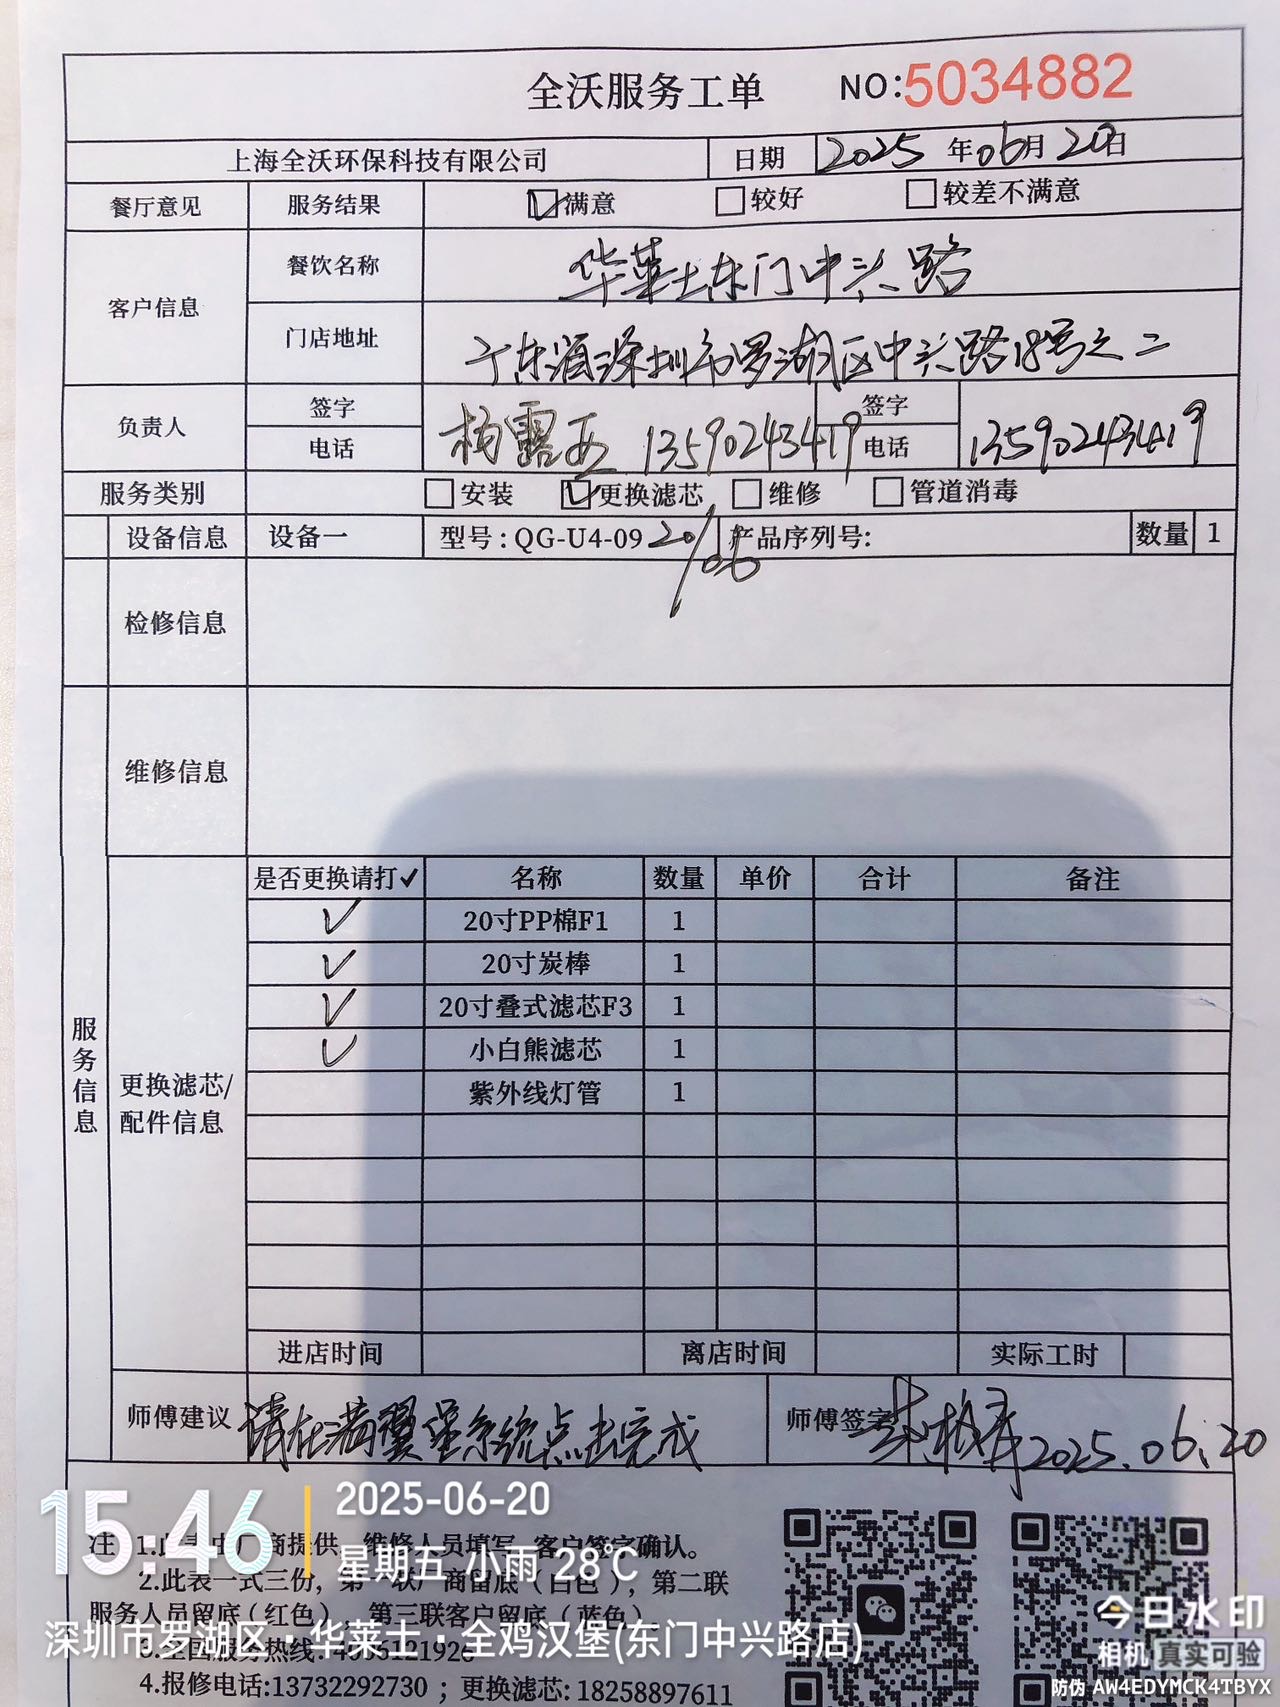 全沃服务工单 NO:5034882
上海全沃环保科技有限公司 日期 2025 年 06 月 20 日
餐厅意见 服务结果 ☑满意 □较好 □较差不满意
客户信息 餐饮名称 华莱士东门中兴路
门店地址 广东省深圳市罗湖区中兴路18号之二
负责人 签字 杨露西 签字
电话 13590243419 电话 13590243419
服务类别 □安装 ☑更换滤芯 □维修 □管道消毒
设备信息 设备一 型号:QG-U4-09 20/06 产品序列号: 数量 1
检修信息
维修信息
服务信息
更换滤芯/
配件信息
是否更换请打✓ 名称 数量 单价 合计 备注
✓ 20寸PP棉F1 1
✓ 20寸炭棒 1
✓ 20寸叠式滤芯F3 1
✓ 小白熊滤芯 1
紫外线灯管 1
进店时间 离店时间 实际工时
师傅建议 请在满翼堡系统点击完成 师傅签字 2025.06.20
注 1.此表由厂商提供,维修人员填写,客户签字确认。
2.此表一式三份,第一联厂商留底(白色),第二联
服务人员留底(红色),第三联客户留底(蓝色)。
3.全国服务热线:4006121926
4.报修电话:13732292730 ; 更换滤芯: 18258897611
15:46 2025-06-20
星期五 小雨 28℃
深圳市罗湖区·华莱士·全鸡汉堡(东门中兴路店)
今日水印
相机 真实可验
防伪 AW4EDYMCK4TBYX